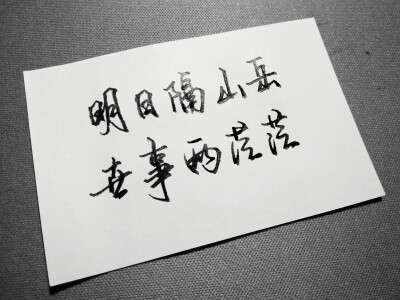 明日隔山岳
世事两茫茫